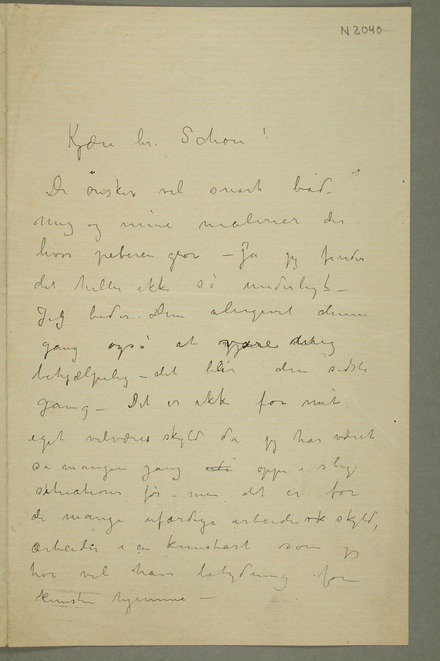 N 2040
Kjære hr. Schou!
De ønsker vel snart både
mig og mine malerier der
hvor peberen gror – Ja jeg finder
det heller ikke så underligt –
Jeg beder Dem alligevel denne
gang også at være
behjælpelig – det blir den sidste
gang – Det er ikke for mit
eget velværes skyld da jeg har været
så mangen gang oppe i slig
situationer før – men det er for
de mange ufærdige arbeiders skyld,
arbeider i en kunstart som jeg
tror vil have betydning for
kunsten hjemme –